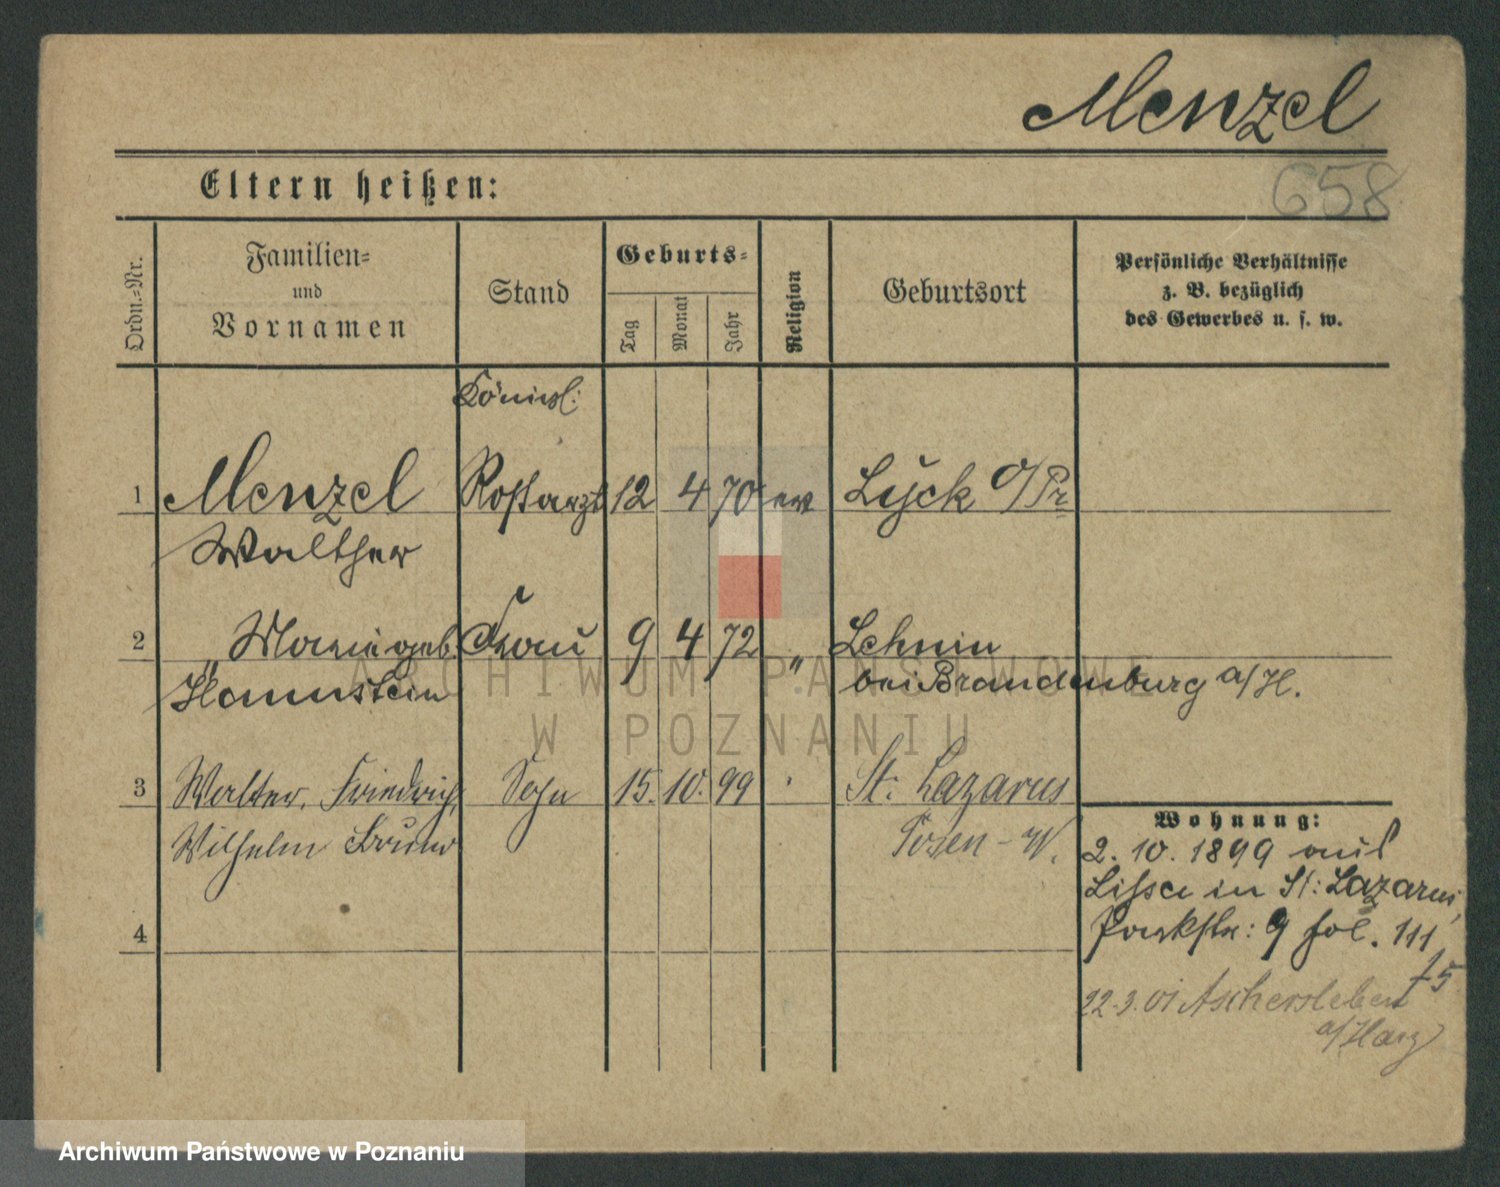 Menzel
658
Eltern heißen:
Ordn.-Nr.
Familien-
und
Vornamen
Stand
Geburts-
Tag
Monat
Jahr
Religion
Geburtsort
Persönliche Verhältnisse
z. B. bezüglich
des Gewerbes u. s. w.
Königl:
1 Menzel Roßarzt 12 4 70 ev Lyck O/Pr
Walther
2 Marie geb. Frau 9 4 72 " Lehnin
Hannstein bei Brandenburg a/H.
3 Walter, Friedrich, Sohn 15. 10. 99 St. Lazarus
Wilhelm Bruno Posen - W.
Wohnung:
2. 10. 1899 aus
Lissa in St: Lazarus,
Parkstr: 9 fol. 111
4
22.3.01 Aschersleben
a/Harz
ARCHIWUM PAŃSTWOWE
W POZNANIU
Archiwum Państwowe w Poznaniu